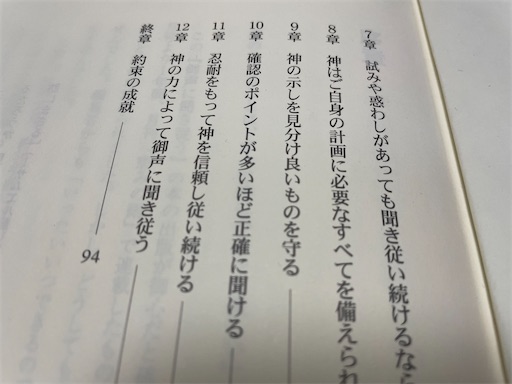 7章 試みや惑わしがあっても聞き従い続けるなら
8章 神はご自身の計画に必要なすべてを備えられ
9章 神の示しを見分け良いものを守る
10章 確認のポイントが多いほど正確に聞ける
11章 忍耐をもって神を信頼し従い続ける
12章 神の力によって御声に聞き従う
終章 約束の成就 94